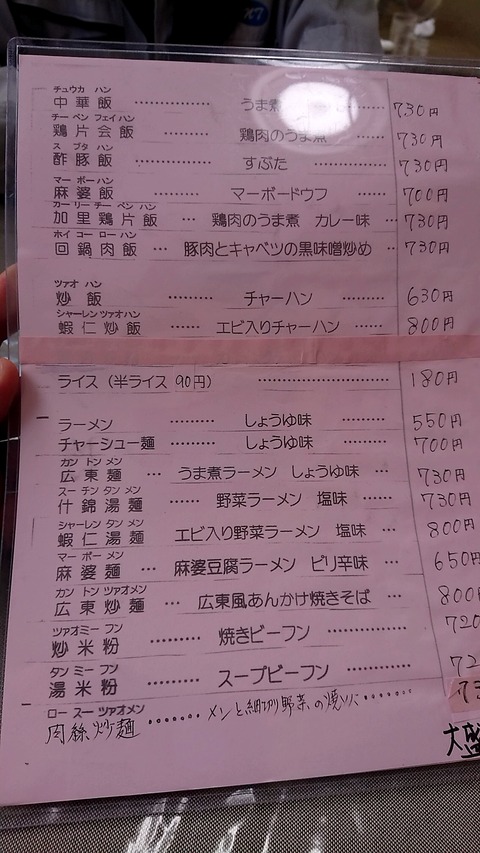 チュウカ ハン
中華飯 …………… うま煮 730円
チー ペン フェイ ハン
鶏片会飯 ……… 鶏肉のうま煮 730円
ス ブタ ハン
酢豚飯 …………… すぶた …………… 730円
マー ボー ハン
麻婆飯 ……… マーボードウフ …… 700円
カーリー チー ペン ハン
加里鶏片飯 … 鶏肉のうま煮 カレー味 … 730円
ホイ コー ロー ハン
回鍋肉飯 … 豚肉とキャベツの黒味噌炒め … 730円
ツァオ ハン
炒飯 ……… チャーハン ……… 630円
シャーレン ツァオハン
蝦仁炒飯 ……… エビ入りチャーハン … 800円
ライス (半ライス 90円) ……………………… 180円
ラーメン ……… しょうゆ味 ……… 550円
チャーシュー麺 ……… しょうゆ味 ……… 700円
カン トン メン
広東麺 … うま煮ラーメン しょうゆ味 … 730円
スー チン タン メン
什錦湯麺 …… 野菜ラーメン 塩味 …… 730円
シャーレン タン メン
蝦仁湯麺 エビ入り野菜ラーメン 塩味 … 800円
マー ボー メン
麻婆麺 … 麻婆豆腐ラーメン ピリ辛味 … 650円
カン トン ツァオメン
広東炒麺 … 広東風あんかけ焼きそば … 800円
ツァオミー フン
炒米粉 ……… 焼きビーフン ……… 720
タン ミー フン
湯米粉 ……… スープビーフン ………
ロー スー ツァオメン
肉絲炒麺 ……… メンと細切り野菜の焼ソバ ………
大盛